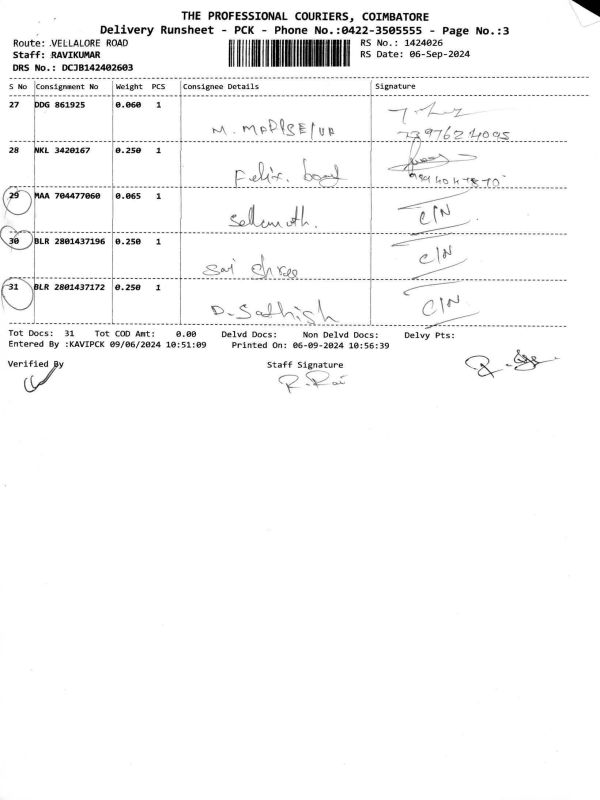 THE PROFESSIONAL COURIERS, COIMBATORE
Delivery Runsheet - PCK - Phone No.:0422-3505555 - Page No.:3
Route: VELLALORE ROAD RS No.: 1424026
Staff: RAVIKUMAR RS Date: 06-Sep-2024
DRS No.: DCJB142402603
S No Consignment No Weight PCS Consignee Details Signature
27 DDG 861925 0.060 1
M.
28 NKL 3420167 0.250 1
Felix.
29 MAA 704477060 0.065 1
C/N
30 BLR 2801437196 0.250 1
C/N
Sai Shree
31 BLR 2801437172 0.250 1
C/N
D. Sathish
Tot Docs: 31 Tot COD Amt: 0.00 Delvd Docs: Non Delvd Docs: Delvy Pts:
Entered By :KAVIPCK 09/06/2024 10:51:09 Printed On: 06-09-2024 10:56:39
Verified By Staff Signature